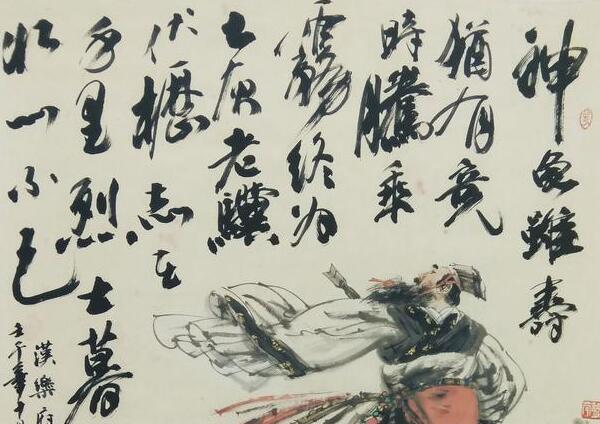 神龜雖壽
猶有竟
時騰乘
霧終為
土灰老驥
伏櫪志在
千里烈士暮
壯心不已
漢樂府
壬午年十